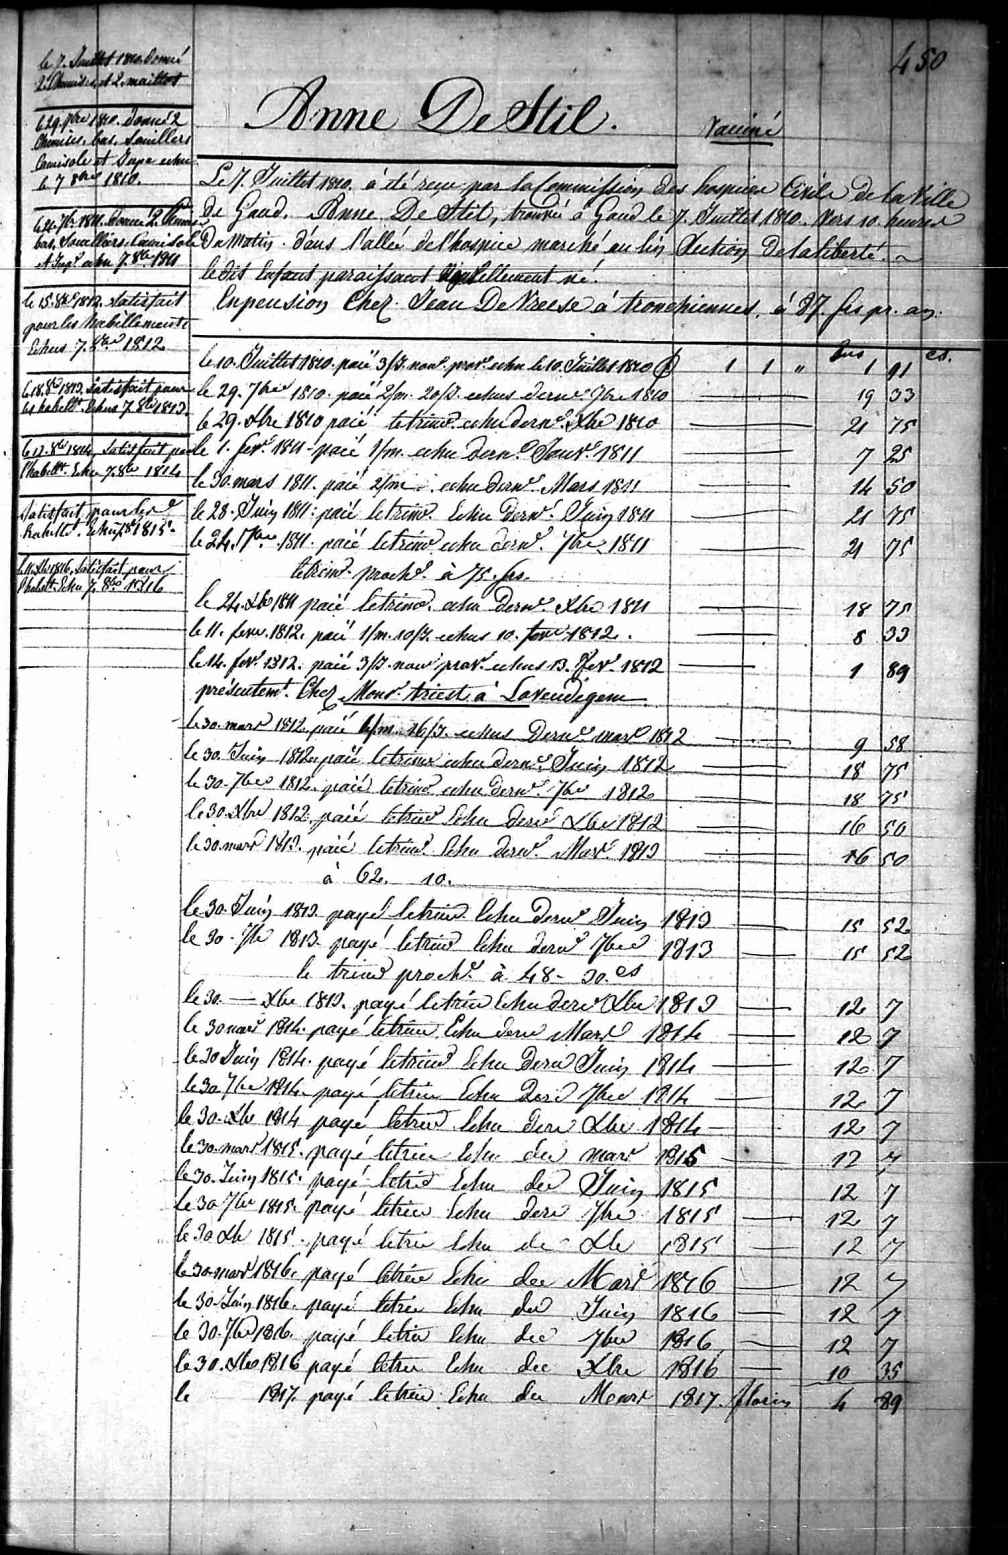 450
Anne De Stil.
Vacciné
Le 7. Juillet 1810. a été reçu par la Commission des hospices Civils de la Ville
de Gand. Anne De Stil, trouvée à Gand le 7. Juillet 1810. vers 10. heures
du Matin. dans l'allée de l'hospice marché au lin Section de la liberté.
le dit Enfant paraissant nouvellement né.
En pension Chez Jean De Vreese à tronchiennes, à 87 frs pr. an.
le 7. Juillet 1810. donné
2. Chemises, et 2. maillots
le 29. 7bre 1810. donné 2
Chemises, bas, Souillers
Camisole et Jupe echu
le 7 8bre 1810.
bas, Souillers, Camisole
et Jupe echu 7. 8bre 1811
le 15. 8bre 1812. satisfait
pour les habillements
Echus 7. 8bre 1812
le 18. 8bre 1813. Satisfait pour
les habillts. Echus 7. 8bre 1813.
le 12. 8bre 1814. Satisfait pour
l'habillt. Echu 7. 8bre 1814
Satisfait pour les
habillt. Echu 7. 8bre 1815.
1816. Satisfait pour
l'habillt. Echu 7. 8bre 1816
frs cs.
le 10. Juillet 1810. paié 3/j. nouv. prov. echu le 10. Juillet 1810 1 1 " 1 91
le 29. 7bre 1810. paié 2/m. 20/j. echus dern. 7bre 1810 19 33
le 29. Xbre 1810 paié le trim. echu dern. Xbre 1810 21 75
le 1. fevr. 1811. paié 1/m. echu dern. Janvr. 1811 7 25
le 30. mars 1811. paié 2/m. echu dern. Mars 1811 14 50
le 28. Juin 1811. paié le trim. Echu dern. Juin 1811 21 75
le 24. 7bre. 1811. paié le trim. echu dern. 7bre 1811 21 75
le trim. proch. à 75. frs.
le 24. Xbre 1811 paié le trim. echu dern. Xbre 1811 18 75
le 11. fevr. 1812. paié 1/m. 10/j. echus 10. fevr 1812. 8 33
le 14. fevr. 1812. paié 3/j. nouv. prov. echus 13. fevr. 1812 1 89
présentemt. Chez Monr. triest à Lovendegem
le 30. mars 1812. paié 1/m. 16/j. echus dern. mars 1812 9 58
le 30. Juin 1812. paié le trim. echu dern. Juin 1812 18 75
le 30. 7bre 1812. paié le trim. echu dern. 7bre 1812 18 75
le 30. Xbre 1812. paié le trim. Echu dern. Xbre 1812 16 50
le 30. mars 1813. paié le trim. Echu dern. Mars. 1813 16 50
à 62. 10.
le 30. Juin 1813. payé le trim. Echu dern. Juin 1813 15 52
le 30. 7bre 1813. payé le trim. Echu dern. 7bre 1813 15 52
le trim. proch. à 48 - 30. cs
le 30. — Xbre 1813. payé le trim Echu dern. Xbre 1813 12 7
le 30 mars 1814. payé le trim. Echu dern Mars 1814 12 7
le 30 Juin 1814. payé le trim Echu dern Juin 1814 12 7
le 30 7bre 1814. payé le trim Echu dern 7bre 1814 12 7
le 30. Xbre 1814 payé le trim Echu dern Xbre 1814 12 7
le 30. mars 1815. payé le trim Echu der mars 1815 12 7
le 30. Juin 1815. payé le trim Echu der Juin 1815 12 7
le 30 7bre 1815. payé le trim Echu dern 7bre 1815 12 7
le 30 Xbre 1815. payé le trim Echu de Xbre 1815 12 7
le 30. mars 1816. payé le trim Echu der Mars 1816 12 7
le 30. Juin 1816. payé le trim Echu der Juin 1816 12 7
le 30. 7bre 1816. payé le trim Echu der 7bre 1816 12 7
le 30. Xbre 1816 payé le trim Echu der Xbre 1816 10 35
le 1817. payé le trim Echu der Mars 1817. florins 4 89